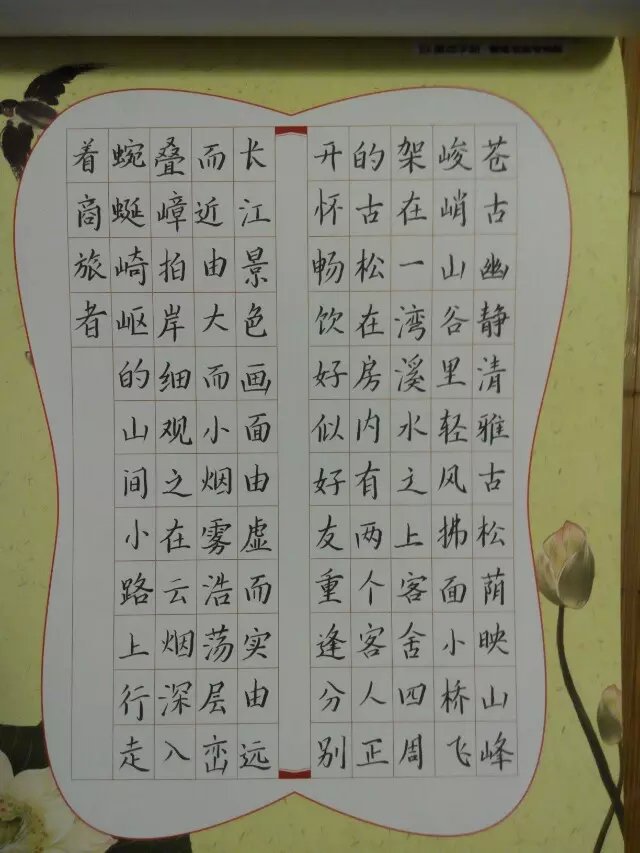 苍古幽静清雅古松荫映山峰
峻峭山谷里轻风拂面小桥飞
架在一湾溪水之上客舍四周
的古松在房内有两个客人正
开怀畅饮好似好友重逢分别
长江景色画面由虚而实由远
而近由大而小烟雾浩荡层峦
叠嶂拍岸细观之在云烟深入
蜿蜒崎岖的山间小路上行走
着商旅者